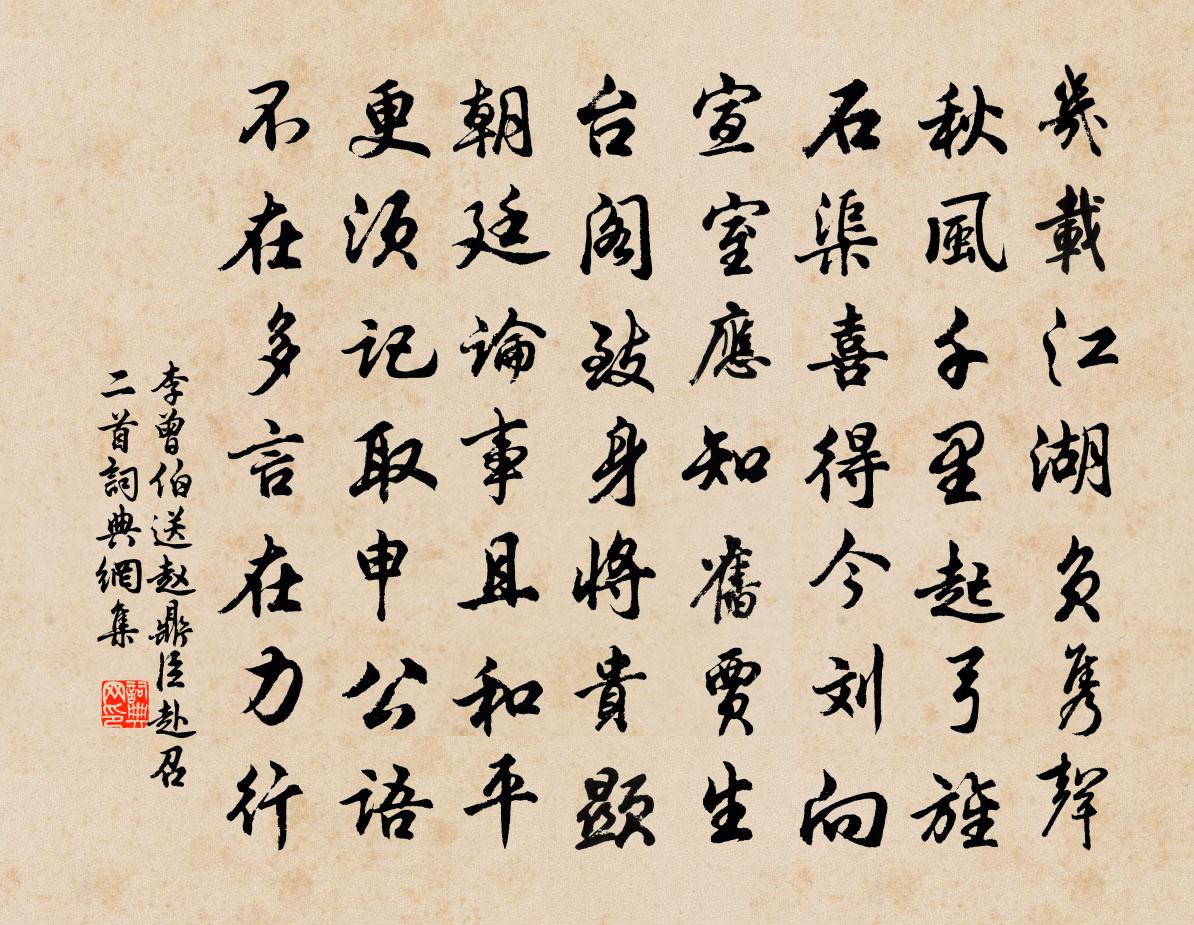 幾載江湖負雋聲
秋風千里起弓旌
石渠喜得今刘向
宣室應知舊賈生
台閣致身將貴顯
朝廷論事且和平
更須記取申公語
不在多言在力行
李曾伯送赵鼎臣赴召
二首詞典網集
詞典
网印